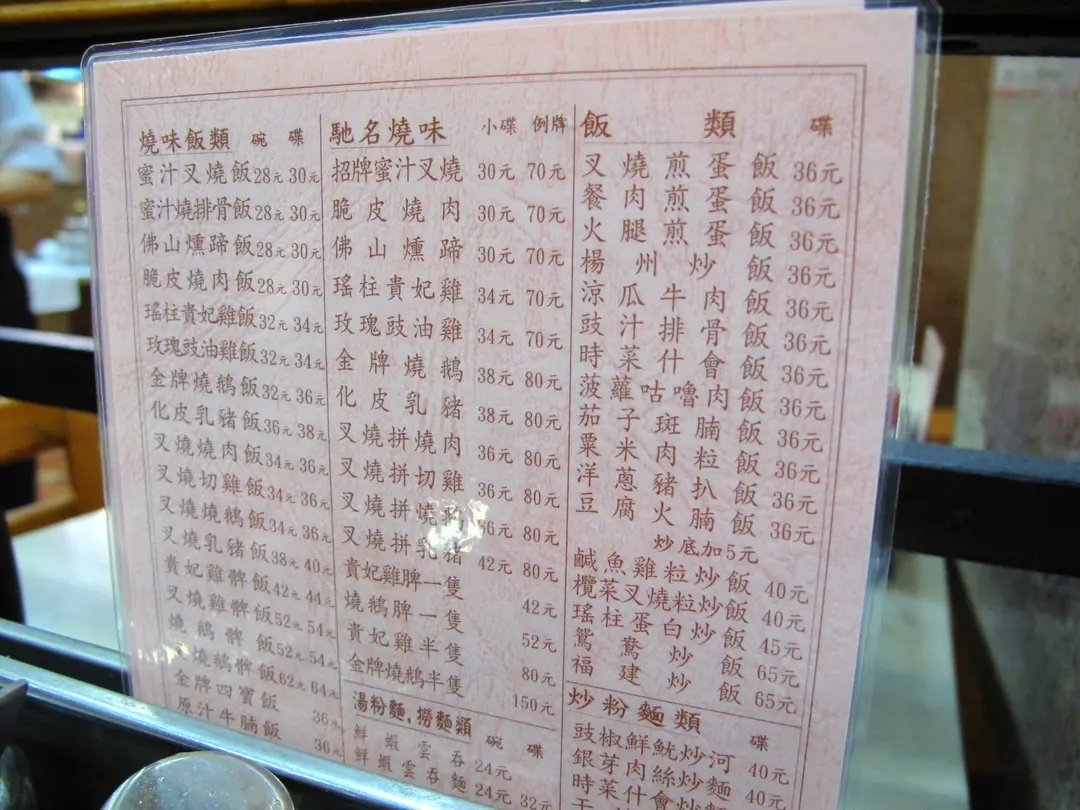 燒味飯類 碗 碟
蜜汁叉燒飯 28元 30元
蜜汁燒排骨飯 28元 30元
佛山燻蹄飯 28元 30元
脆皮燒肉飯 28元 30元
瑤柱貴妃雞飯 32元 34元
玫瑰豉油雞飯 32元 34元
金牌燒鵝飯 32元 36元
化皮乳豬飯 36元 38元
叉燒燒肉飯 34元 36元
叉燒切雞飯 34元 36元
叉燒燒鵝飯 34元 36元
叉燒乳豬飯 38元 40元
貴妃雞髀飯 42元 44元
叉燒雞髀飯 52元 54元
燒鵝髀飯 52元 54元
叉燒鵝髀飯 62元 64元
金牌四寶飯 36元
原汁牛腩飯 36元
馳名燒味 小碟 例牌
招牌蜜汁叉燒 30元 70元
脆皮燒肉 30元 70元
佛山燻蹄 30元 70元
瑤柱貴妃雞 34元 70元
玫瑰豉油雞 34元 70元
金牌燒鵝 38元 80元
化皮乳豬 38元 80元
叉燒拼燒肉 36元 80元
叉燒拼切雞 36元 80元
叉燒拼燒鵝 36元 80元
叉燒拼乳豬 42元 80元
貴妃雞脾一隻 42元
燒鵝脾一隻 52元
貴妃雞半隻 80元
金牌燒鵝半隻 150元
湯粉麵,撈麵類 碗 碟
鮮蝦雲吞 24元
鮮蝦雲吞麵 24元 32元
飯類 碟
叉燒煎蛋飯 36元
餐肉煎蛋飯 36元
火腿煎蛋飯 36元
楊州炒飯 36元
涼瓜牛肉飯 36元
豉汁排骨飯 36元
時菜什會飯 36元
菠蘿咕嚕肉飯 36元
茄子斑腩飯 36元
粟米肉粒飯 36元
洋蔥豬扒飯 36元
豆腐火腩飯 36元
炒底加5元
鹹魚雞粒炒飯 40元
欖菜叉燒粒炒飯 40元
瑤柱蛋白炒飯 45元
鴛鴦炒飯 65元
福建炒飯 65元
炒粉麵類 碟
豉椒鮮魷炒河 40元
銀芽肉絲炒麵 40元
時菜什會炒麵